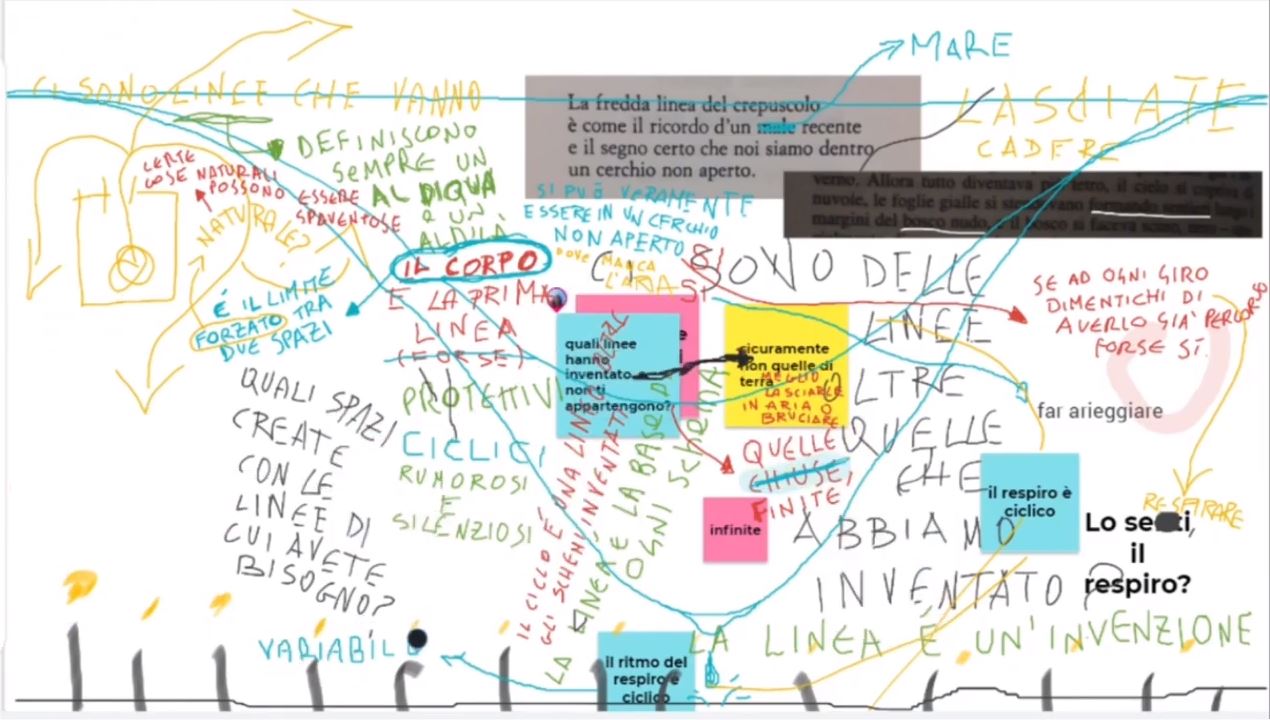 MARE
CI SONO LINEE CHE VANNO
LASCIATE
CADERE
La fredda linea del crepuscolo
è come il ricordo d'un male recente
e il segno certo che noi siamo dentro
un cerchio non aperto.
verno. Allora tutto diventava più tetro, il cielo si copriva di
nuvole, le foglie gialle si staccavano formando sentieri lungo i
margini del bosco nudo, e il bosco si faceva scuro, nero
DEFINISCONO
SEMPRE UN
AL DIQUA
E UN
ALDILÀ
CERTE
COSE NATURALI
POSSONO ESSERE
SPAVENTOSE
NATURALE?
È IL LIMITE
FORZATO TRA
DUE SPAZI
SI PUÒ VERAMENTE
ESSERE IN UN CERCHIO
NON APERTO
DOVE MANCA
L'ARIA
SI
SI
IL CORPO
E LA PRIMA
LINEA
(FORSE)
PROTETTIVI
CICLICI
RUMOROSI
E
SILENZIOSI
QUALI SPAZI
CREATE
CON LE
LINEE DI
CUI AVETE
BISOGNO?
quali linee
hanno
inventato
non ti
appartengono?
sicuramente
non quelle di
terra
MEGLIO
LASCIARLE
IN ARIA O
BRUCIARE
CI SONO DELLE
LINEE
OLTRE
QUELLE
CHE
ABBIAMO
INVENTATO?
SE AD OGNI GIRO
DIMENTICHI DI
AVERLO GIA' PERCORSO
FORSE SÌ.
far arieggiare
QUELLE
CHIUSE,
FINITE
infinite
il respiro è
ciclico
RESPIRARE
Lo senti,
il
respiro?
IL CICLO È UNA LINEA
GLI SCHEMI INVENTATI
LA LINEA È LA BASE DI
OGNI SCHEMA
LA LINEA É UN'INVENZIONE
VARIABILE
il ritmo del
respiro è
ciclico